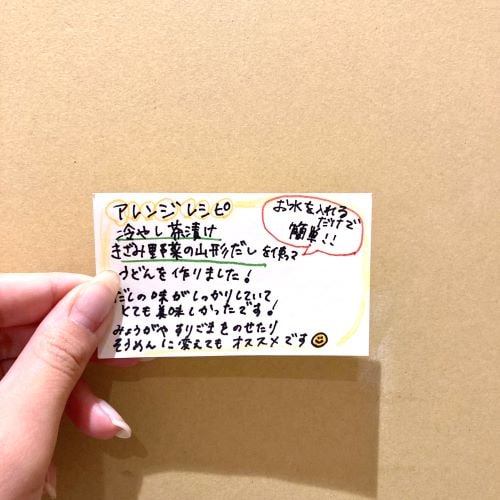 アレンジレシピ
冷やし茶漬け
きざみ野菜の山形だしを使って
うどんを作りました!
だしの味がしっかりしていて
とても美味しかったです!
みょうがやすりごまをのせたり
そうめんに変えてもオススメです
お水を入れる
だけで
簡単!!